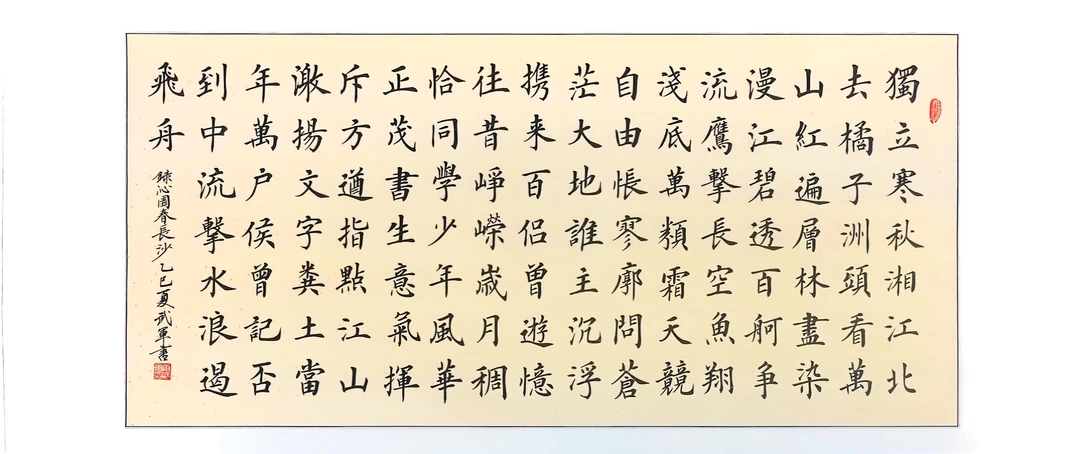 獨立寒秋湘江北
去橘子洲頭看萬
山紅遍層林盡染
漫江碧透百舸争
流鷹擊長空魚翔
淺底萬類霜天競
自由悵寥廓問蒼
茫大地誰主沉浮
携来百侣曾遊憶
往昔崢嶸嵗月稠
恰同學少年風華
正茂書生意氣揮
斥方遒指點江山
激揚文字糞土當
年萬户侯曾記否
到中流擊水浪遏
飛舟
錄沁園春長沙乙巳夏武軍書